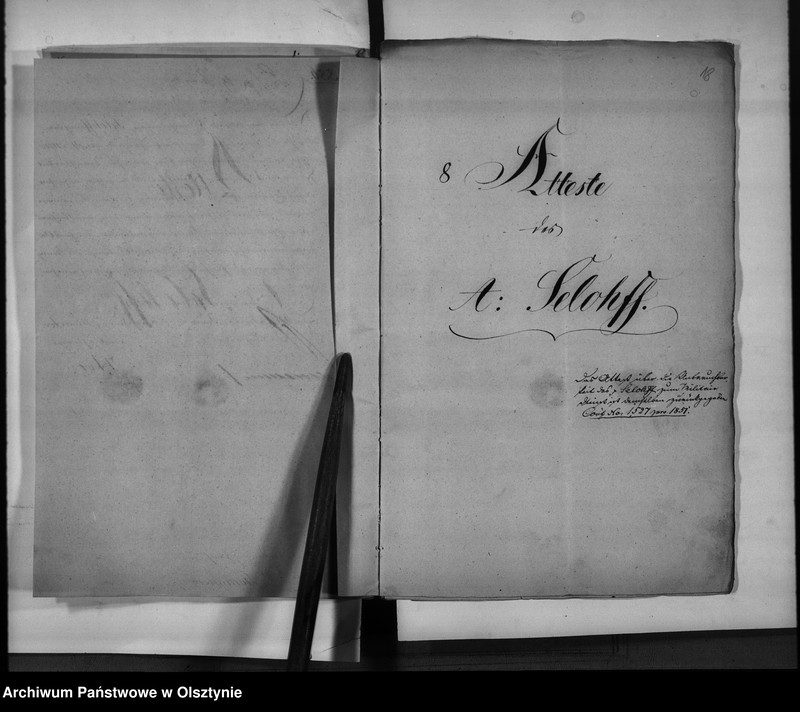 18
8 Atteste
des
A: Selohff.
Das Attest über die
des p Selohff zum Militair
Dienst ist demselben zurückgegeben
Conf No: 1527 pro 1857.
Archiwum Państwowe w Olsztynie